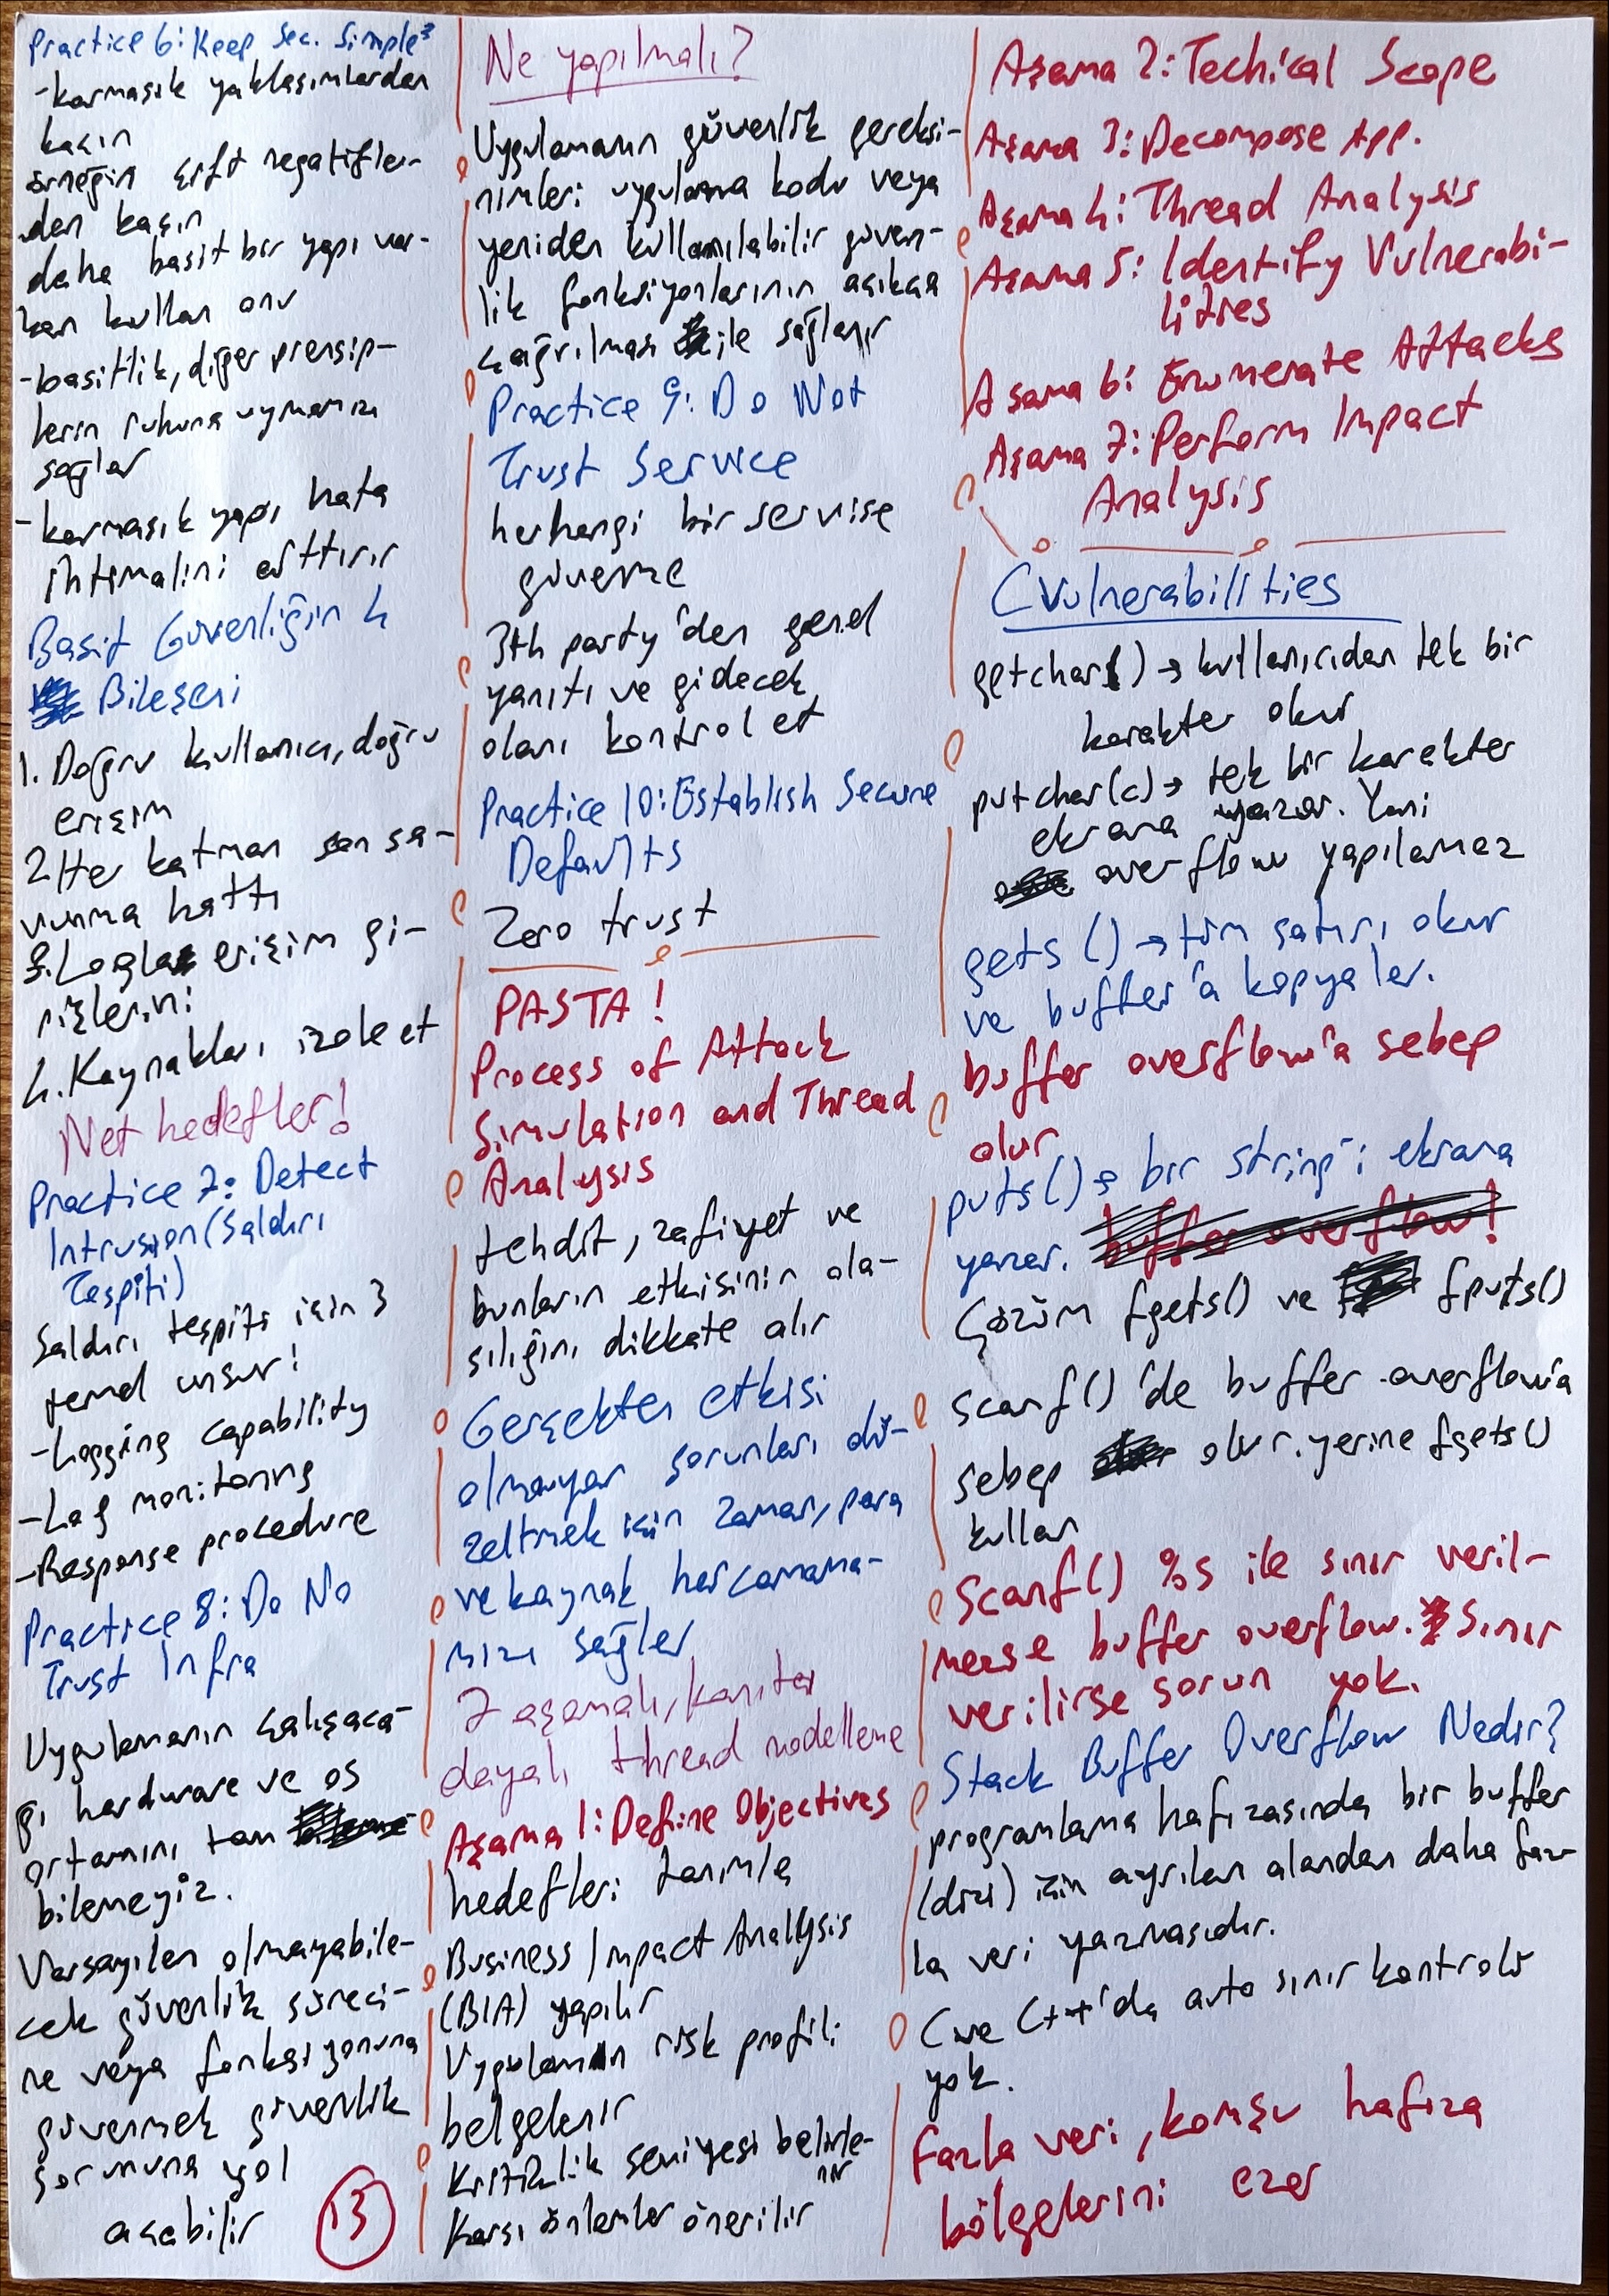 Practice 6: Keep Sec. Simple
-karmaşık yaklaşımlardan
kaçın
örneğin çift negatifler-
den kaçın
daha basit bir yapı var-
ken kullan onu
-basitlik, diğer prensip-
lerin ruhuna uymamızı
sağlar
-karmaşık yapı hata
ihtimalini arttırır
Basit Güvenliğin 4
Bileşeni
1. Doğru kullanıcı, doğru
erişim
2. Her katman son sa-
vunma hattı
3. Logla erişim gi-
rişlerini
4. Kaynakları izole et
Net hedefler!
Practice 7: Detect
Intrusion (Saldırı
Tespiti)
Saldırı tespiti için 3
temel unsur!
-Logging capability
-Log monitoring
-Response procedure
Practice 8: Do No
Trust Infra
Uygulamanın çalışaca-
ğı hardware ve os
ortamını tam
bilemeyiz.
Varsayılan olmayabile-
cek güvenlik süreci-
ne veya fonksiyonuna
güvenmek güvenlik
sorununa yol
açabilir
13
Ne yapılmalı?
Uygulamanın güvenlik gereksi-
nimleri uygulama kodu veya
yeniden kullanılabilir güven-
lik fonksiyonlarının açıkça
çağrılması ile sağlanır
Practice 9: Do Not
Trust Service
herhangi bir servise
güvenme
3th party'den genel
yanıtı ve gidecek
olanı kontrol et
Practice 10: Establish Secure
Defaults
Zero trust
PASTA!
Process of Attack
Simulation and Thread
Analysis
tehdit, zafiyet ve
bunların etkisinin ola-
sılığını dikkate alır
Gerçekten etkisi
olmayan sorunları dü-
zeltmek için zaman, para
ve kaynak harcamama-
mızı sağlar
7 aşamalı, kanıta
dayalı thread modelleme
Aşama 1: Define Objectives
hedefleri tanımla
Business Impact Analysis
(BIA) yapılır
Uygulamanın risk profili
belgelenir
Kritiklik seviyesi belirle-
nir
Karşı önlemler önerilir
Aşama 2: Techical Scope
Aşama 3: Decompose App.
Aşama 4: Thread Analysis
Aşama 5: Identify Vulnerabi-
lities
Aşama 6: Enumerate Attacks
Aşama 7: Perform Impact
Analysis
C Vulnerabilities
getchar() → kullanıcıdan tek bir
karakter okur
putchar(c) → tek bir karekter
ekrana yazar. Yani
overflow yapılamaz
gets () → tüm satırı okur
ve buffer'a kopyalar.
buffer overflow'a sebep
olur
puts() → bir string'i ekrana
yazar. buffer overflow!
Çözüm fgets() ve fputs()
scanf() 'de buffer overflow'a
sebep olur. yerine fgets()
kullan
Scanf() %s ile sınır veril-
mezse buffer overflow. Sınır
verilirse sorun yok.
Stack Buffer Overflow Nedir?
programlama hafızasında bir buffer
(dizi) için ayrılan alandan daha faz-
la veri yazmasıdır.
C ve C++'da auto sınır kontrolü
yok.
Fazla veri, komşu hafıza
bölgelerini ezer